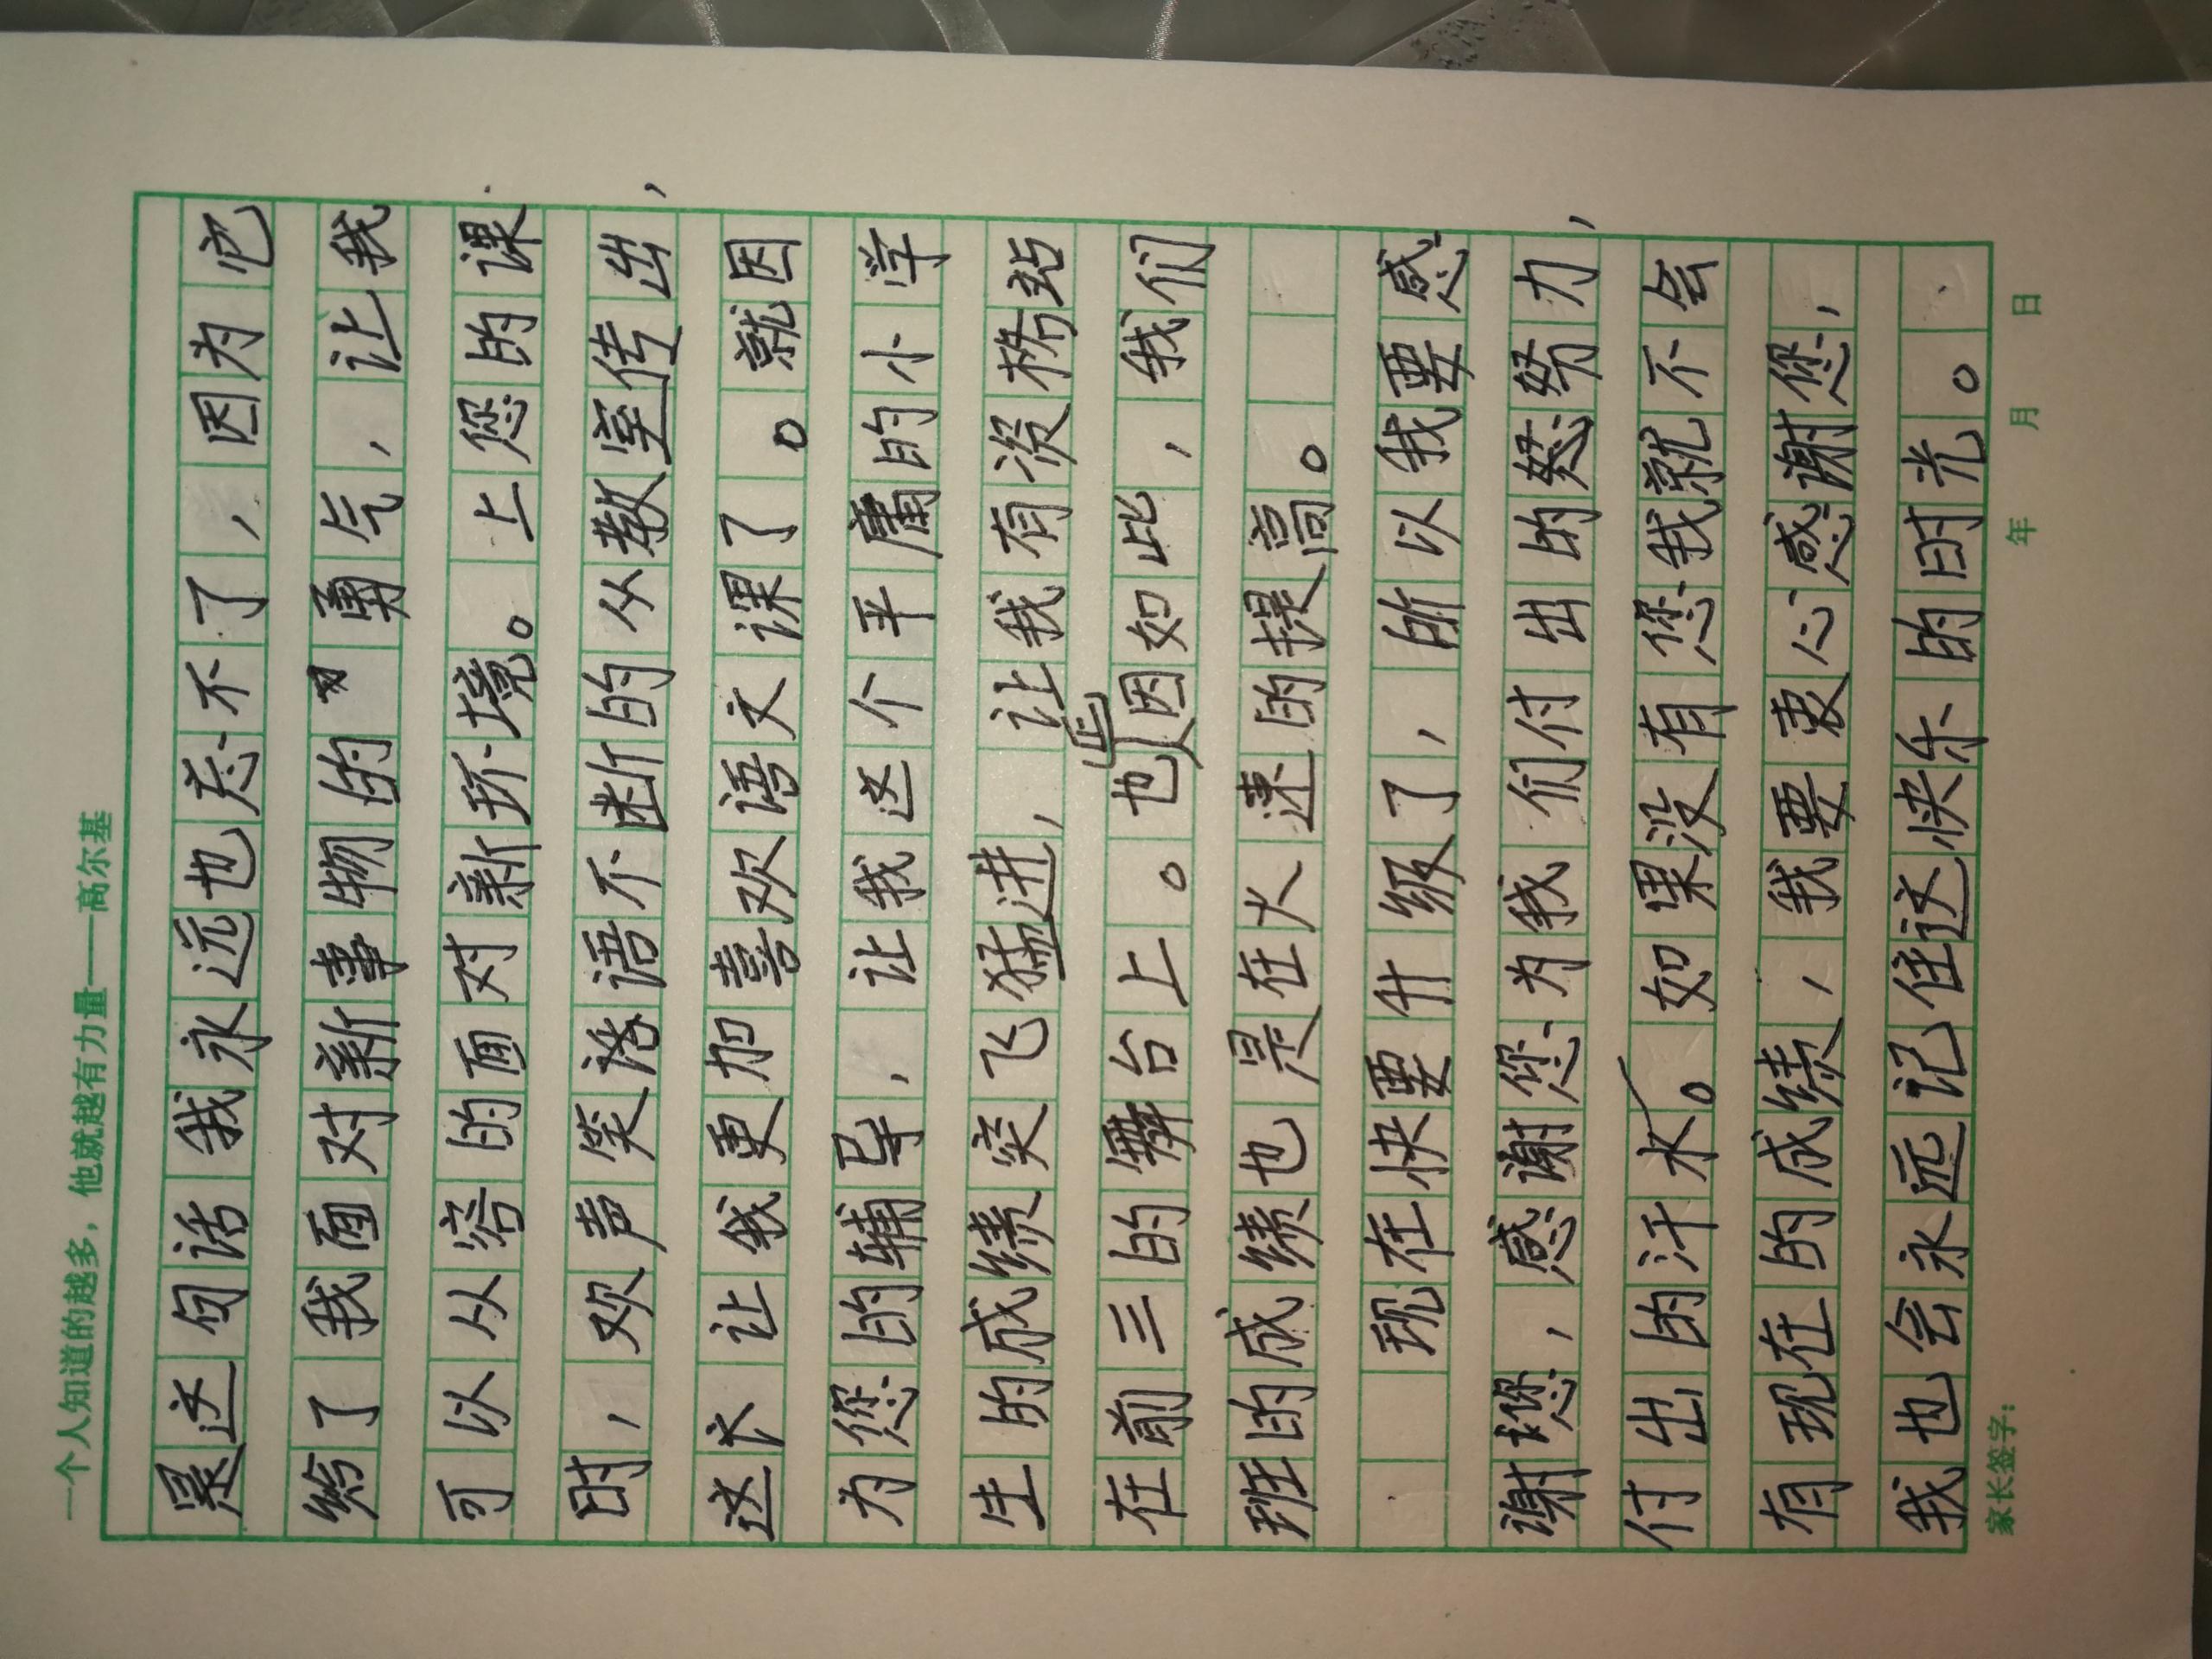 一个人知道的越多，他就越有力量——高尔基
是这句话我永远也忘不了，因为它
给了我面对新事物的勇气，让我
可以从容的面对新环境。上您的课
时，欢声笑语不断的从教室传出，
这让我更加喜欢语文课了。就因
为您的辅导，让我这个平庸的小学
生的成绩突飞猛进，让我有资格站
在前三的舞台上。也正因如此，我们
班的成绩也是在火速的提高。
现在快要升级了，所以我要感
谢您，感谢您为我们付出的努力，
付出的汗水。如果没有您我就不会
有现在的成绩，我要衷心感谢您，
我也会永远记住这快乐的时光。
家长签字： 年 月 日